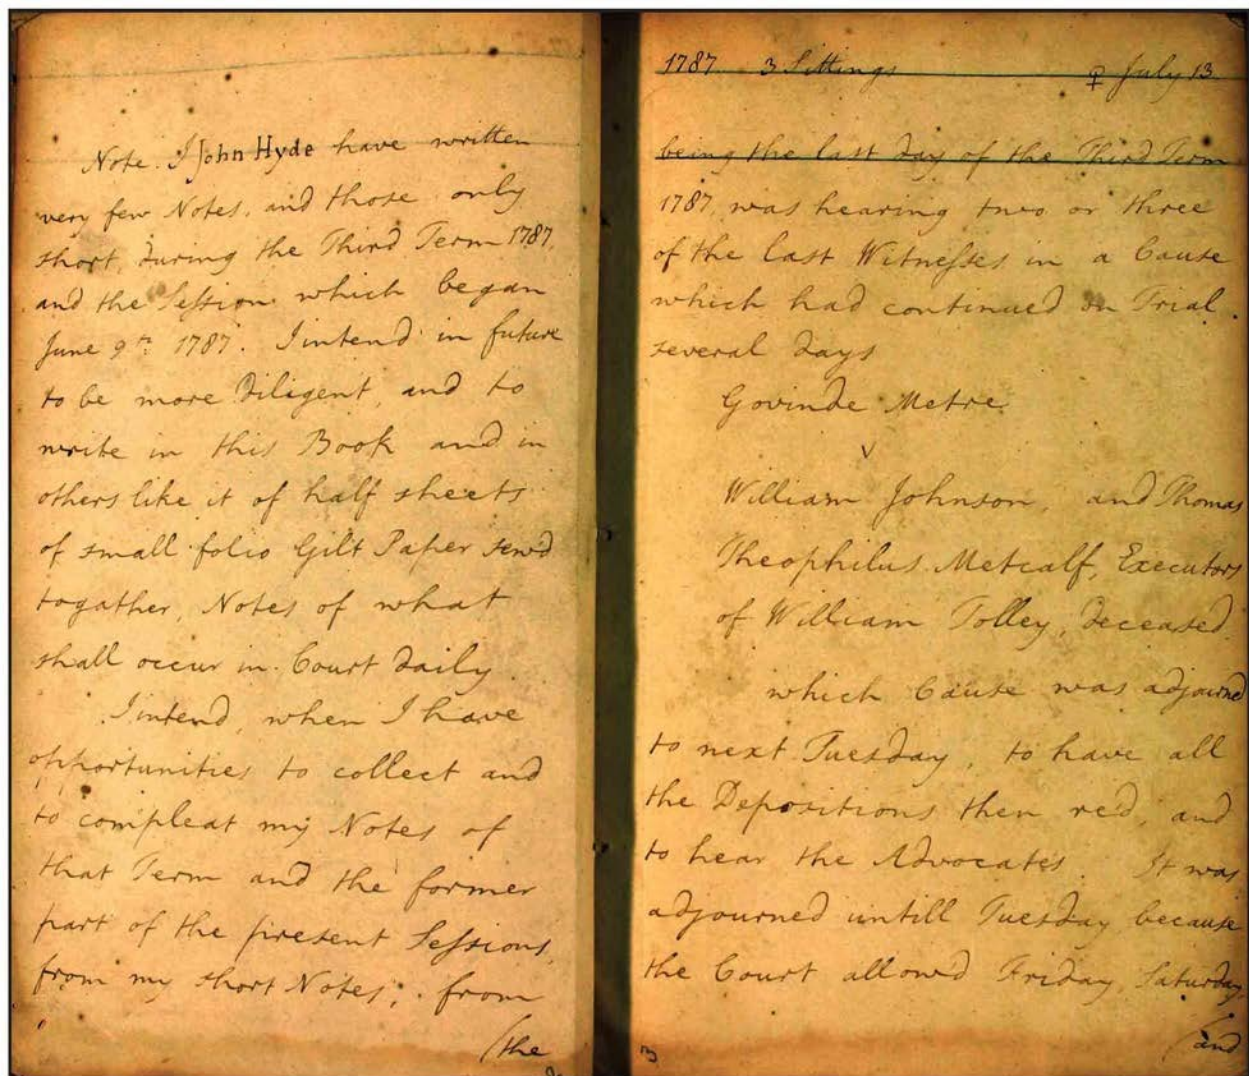 Note. I John Hyde have written
very few Notes, and those only
short, during the Third Term 1787,
and the Session which began
June 9th. 1787. I intend in future
to be more diligent, and to
write in this Book and in
others like it of half sheets
of small folio Gilt Paper sew'd
togather, Notes of what
shall occur in Court daily.
I intend, when I have
opportunities to collect and
to compleat my Notes of
that Term and the former
part of the present Sessions,
from my short Notes; from
(the
1787 3 Sittings ♀ July 13.
being the last day of the Third Term
1787, was hearing two or three
of the last Witnesses in a Cause
which had continued on Trial
several days
Govinde Metre.
v
William Johnson, and Thomas
Theophilus Metcalf, Executors
of William Tolley, deceased.
which Cause was adjourned
to next Tuesday, to have all
the Depositions then red, and
to hear the Advocates. It was
adjourned untill Tuesday because
the Court allowd Friday, Saturday,
3 (and